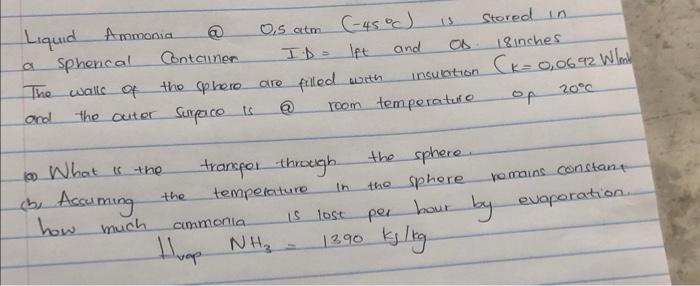 Liquid Ammonia @ 0,5 atm (-45 °C) is stored in
a spherical Container I.D = 1ft and OD 18inches
The walls of the sphere are filled with insulation (k = 0,0692 W/mk
and the outer surface is @ room temperature of 20°C
(a) What is the transfer through the sphere.
(b) Assuming the temperature in the sphere remains constant
how much ammonia is lost per hour by evaporation.
Hvap NH3 = 1390 kJ/kg